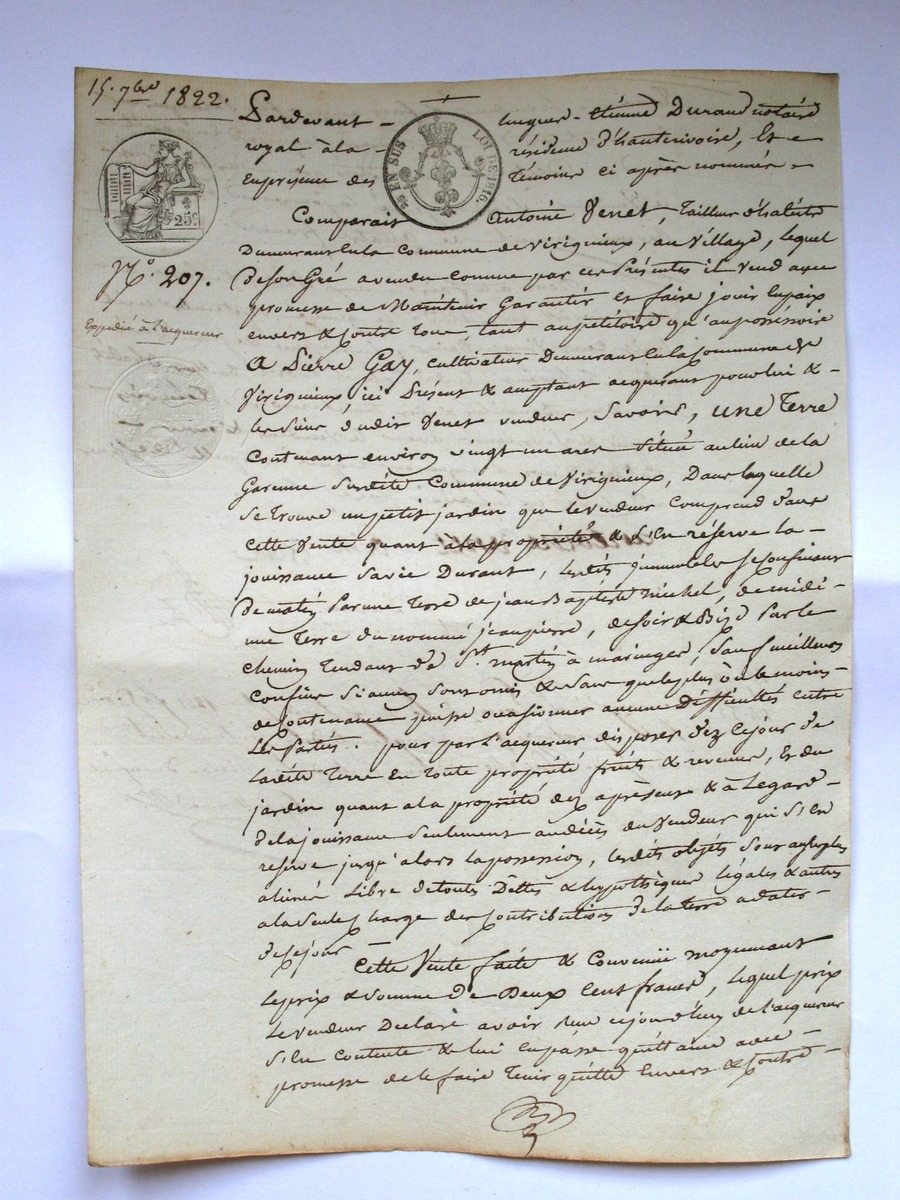 15. 7bre 1822.
Pardevant Étienne Durand notaire
royal à la résidence d'hauterivoire, Et
En présence des témoins ci après nommés
EN SUS
LOI DE 1816.
25c.
Comparait Antoine Venet, tailleur d'habits
Demeurant en la Commune de Virigneux, au Village, lequel
de son Gré a vendu comme par ces Présentes il vend avec
promesse de Maintenir Garantir et faire jouir en paix
envers & contre tous, tant au pétitoire qu'au possessoire
N.o 207.
Expédié à l'acquereur
A Pierre Gay, cultivateur Demeurant en la Commune de
Virigneux, ici Présent & acceptant acquérant pour lui &
les siens dudit Venet vendeur, Savoir, une Terre
Contenant environ vingt un ares Située au lieu de la
Garenne susdite Commune de Virigneux, Dans laquelle
se trouve un petit jardin que le vendeur comprend dans
Cette Vente quant à la propriété & s'en réserve la
jouissance sa vie Durant, lesdits immeubles se Confinant
de matin Par une Terre de jean Baptiste Michel, de midi
une Terre du nommé jeanpierre, de soir & Bize Par le
chemin Tendant de St. martin à maringes, Sauf meilleurs
Confins si aucun sont omis & sans que le plus ou le moins
de Contenance puisse occasionner aucune difficultés entre
Les Parties. pour par l'acquereur disposer dez ce jour de
Ladite Terre En toute propriété fruits & revenus, Et du
jardin quant à la propriété dez aprésent & à l'égard
de la jouissance seulement au décès du Vendeur qui s'en
réserve jusqu'alors la possession, lesdits objets sont au surplus
aliénés Libre de touts Dêttes & hypothèques légales & autres
à la seule charge des Contributions de la terre à dater
de ce jour
Cette Vente faite & Convenüe moyennant
le prix & somme De Deux Cent francs, lequel prix
Le vendeur Declare avoir reçu ce jourd'huy de l'acquereur
S'en Contente & lui en passe quittance avec
promesse de le faire Tenir quitte Envers & Contre